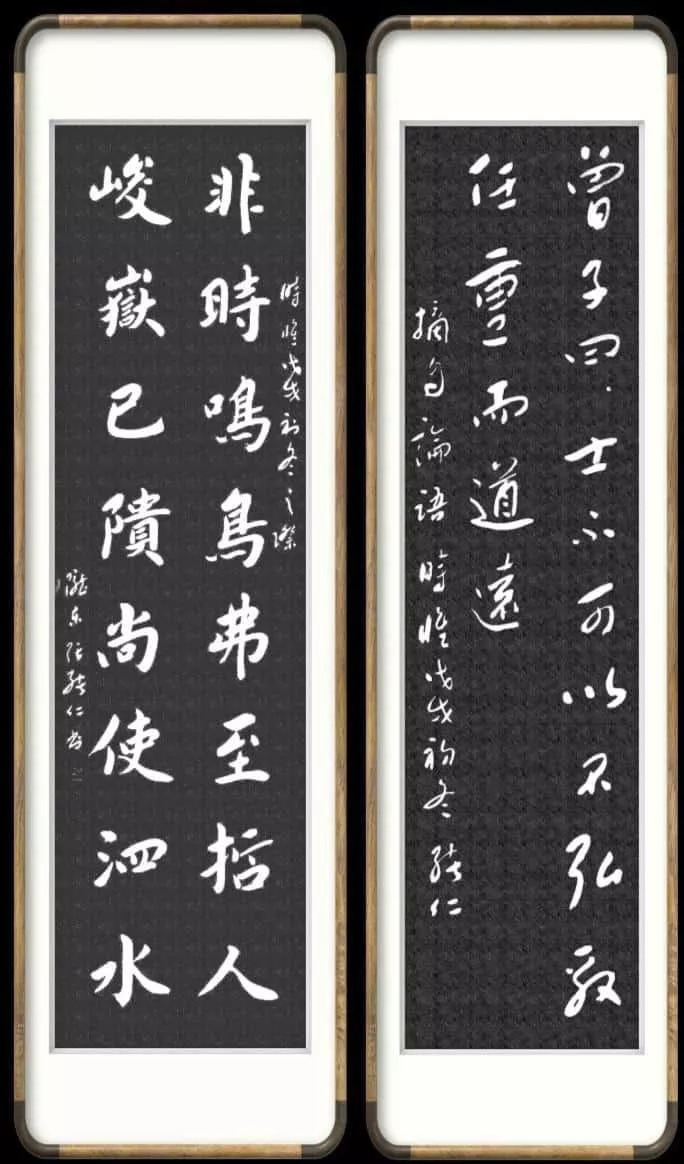 曾子曰：士不可以不弘毅
任重而道遠
摘自論語 時戊戌初冬 仁
時戊戌初冬之際
非時鳴鳥弗至哲人
峻嶽已隤尚使泗水
隴東張仁書